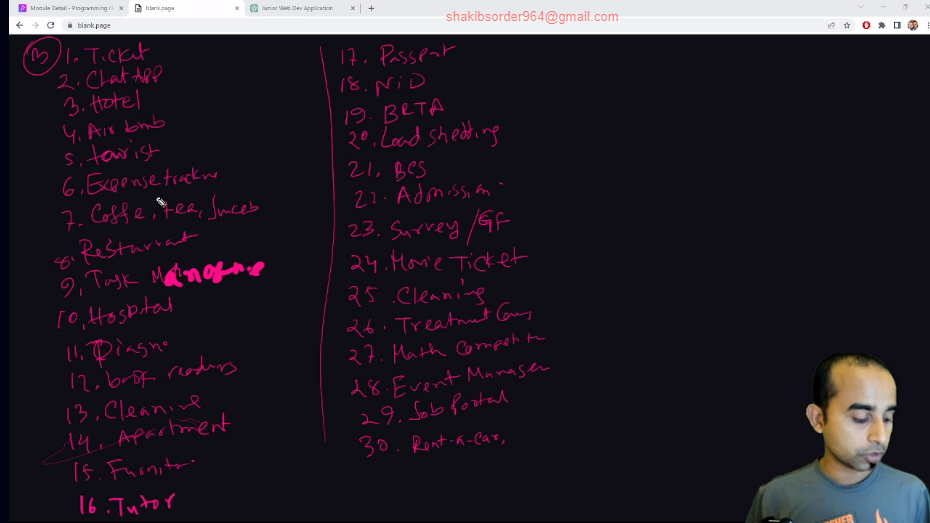 Module Detail - Programming H
blank.page
Junior Web Dev Application
shakibsorder964@gmail.com
blank.page
B
1. Ticket
2. Chat App
3. Hotel
4. Air bmb
5. tourist
6. Expense
7. Coffe, tea,
8. Resturrant
9. Task
10. Hospital
11. Diagno
12. book readers
13. Cleanine
14. Apartment
15. Furnitu
16. Tutor
17. Passport
18. NiD
19. BRTA
20. Load Shedding
21. BCS
22. Admission
23. Survey / GF
24. Movie Ticket
25. Cleaning
26. Treatment
27. Math
28. Event Manager
29. Job Portal
30. Rent-a-Car,